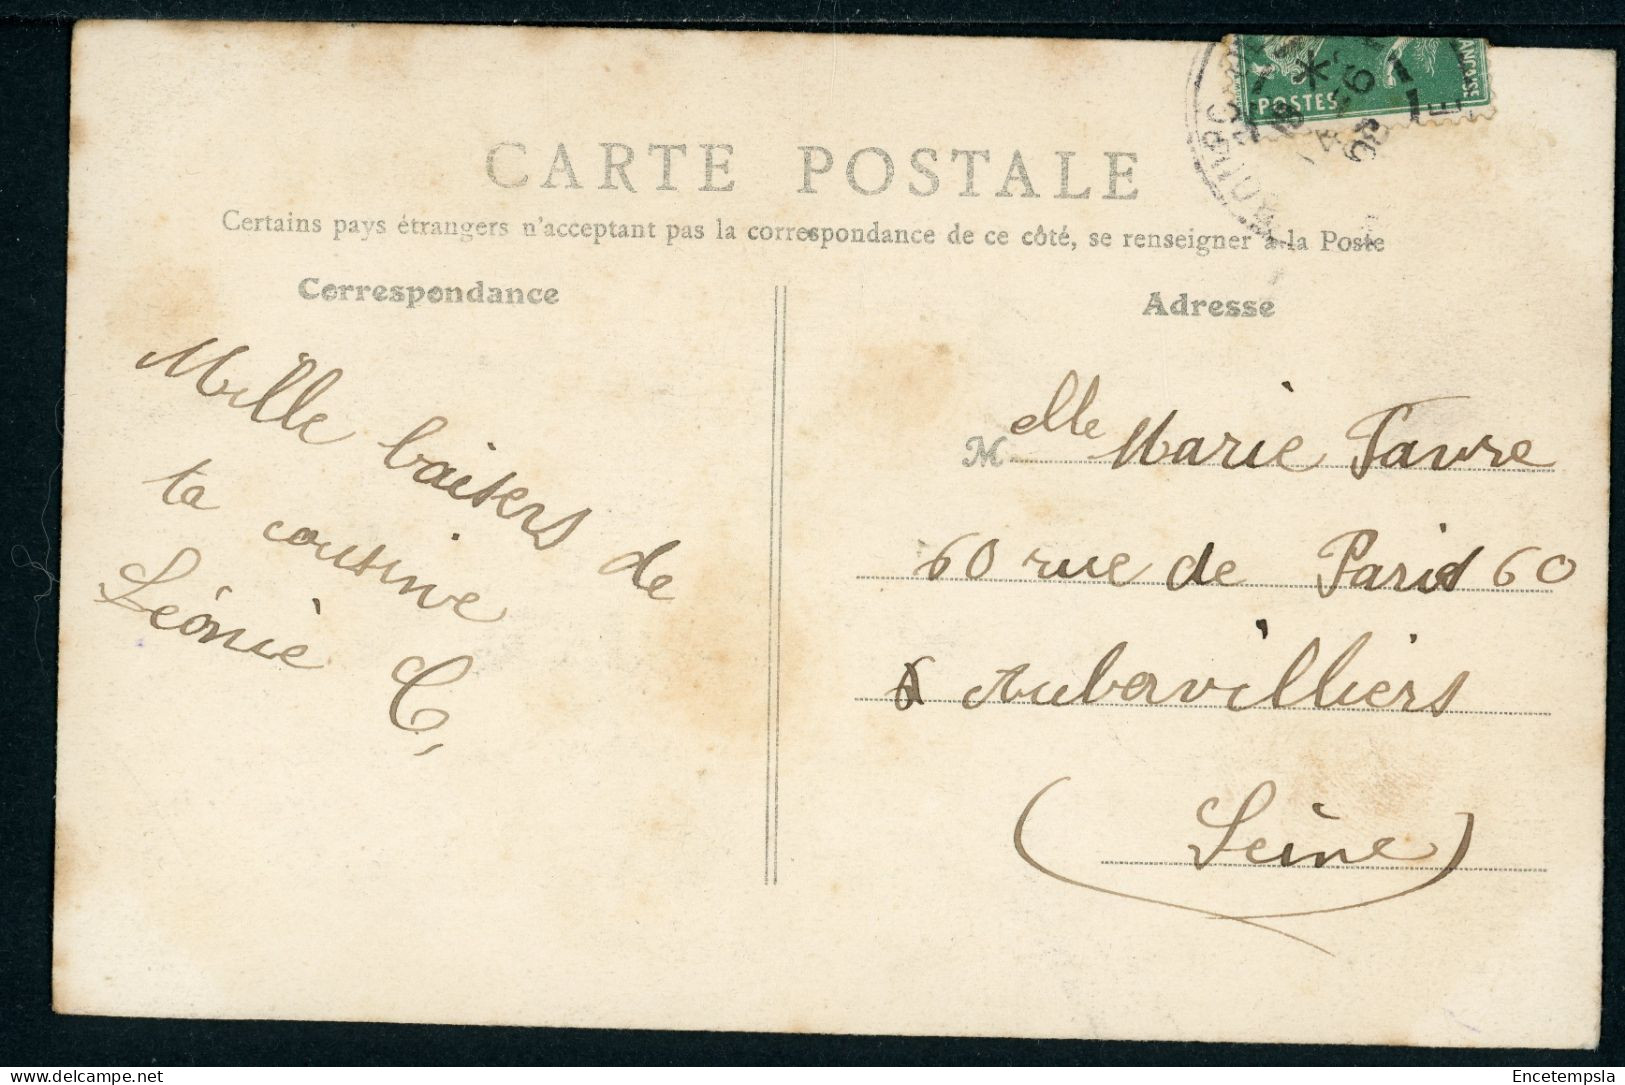 POSTES
CARTE POSTALE
Certains pays étrangers n'acceptant pas la correspondance de ce côté, se renseigner à la Poste
Correspondance
Mille baisers de
ta cousine
Léonie C,
Adresse
Melle Marie Favre
60 rue de Paris 60
Aubervilliers
(Seine)
delcampe.net
Encetempsla